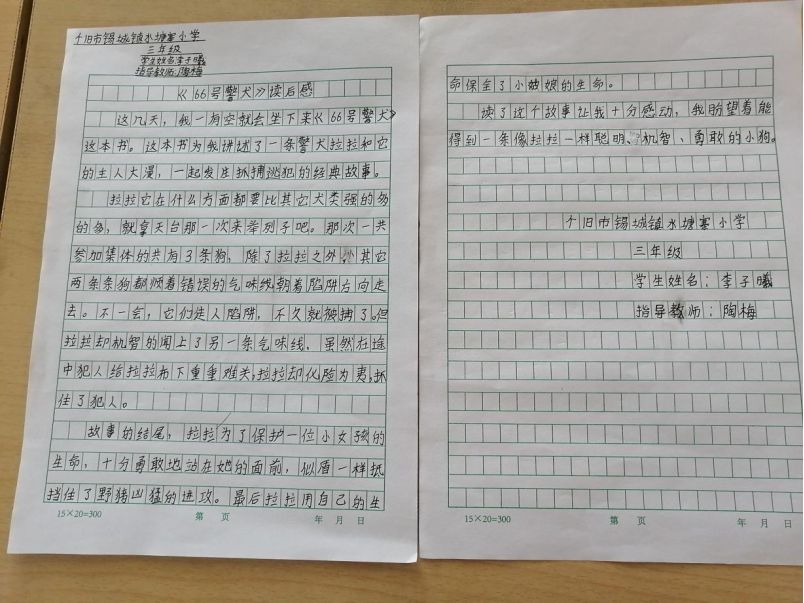 个旧市锡城镇水塘寨小学
三年级
学生姓名李子曦
指导教师:陶梅
《66号警犬》读后感
这几天,我一有空就会坐下来《66号警犬》
这本书。这本书为我讲述了一条警犬拉拉和它
的主人大漠,一起发生抓捕逃犯的经典故事。
拉拉它在什么方面都要比其它犬类强的多
的多,就拿天台那一次来举列子吧。那次一共
参加集体的共有3条狗,除了拉拉之外,其它
两条条狗都顺着错误的气味线,朝着陷阱方向走
去。不一会,它们走人陷阱,不久就被捕了。但
拉拉却机智的闻上了另一条气味线,虽然在途
中犯人给拉拉布下重重难关,拉拉却化险为夷,抓
住了犯人。
故事的结尾,拉拉为了保护一位小女孩的
生命,十分勇敢地站在她的面前,似盾一样抵
挡住了野猪凶猛的进攻。最后拉拉用自己的生
15×20=300 第 页 年 月 日
命保全了小姑娘的生命。
读了这个故事让我十分感动,我盼望着能
得到一条像拉拉一样聪明、机智、勇敢的小狗。
个旧市锡城镇水塘寨小学
三年级
学生姓名:李子曦
指导教师:陶梅
15×20=300 第 页 年 月 日